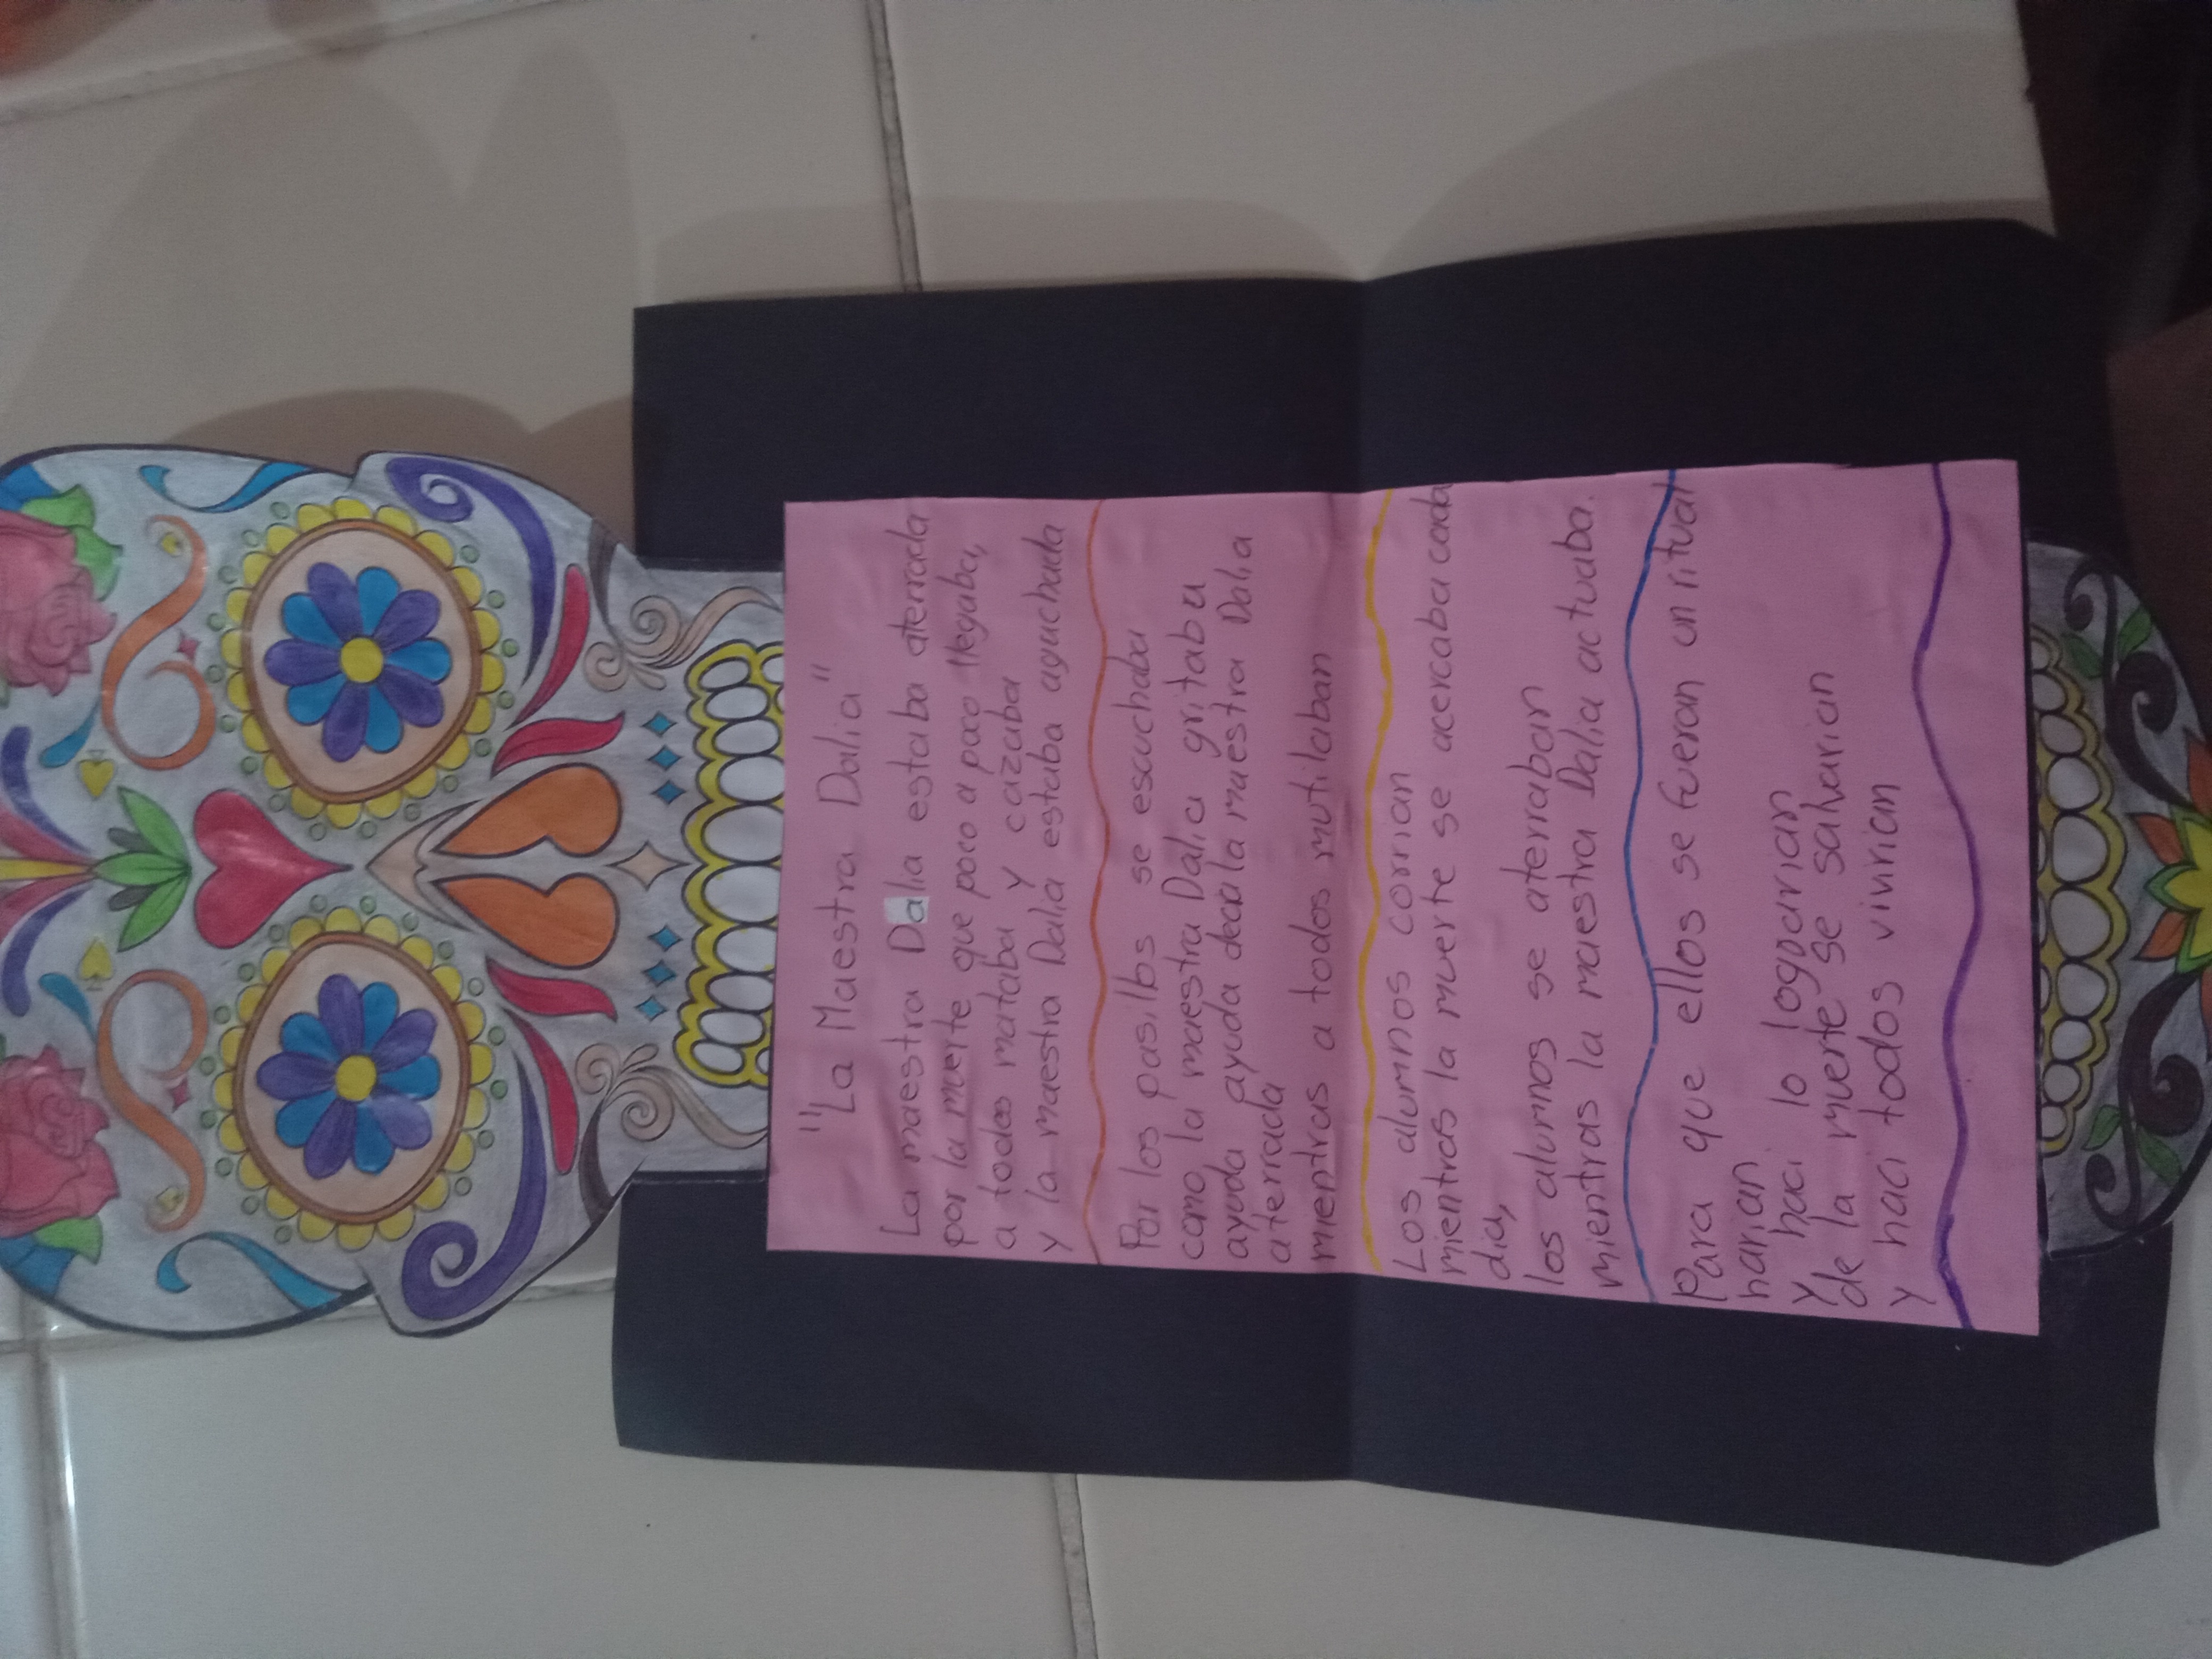 "La Maestra Dalia"
La maestra Dalia estaba aterrada
por la muerte que poco a poco llegaba,
a todos mataba y cazaba
y la maestra Dalia estaba aguchada
Por los pasillos se escuchaba
como la maestra Dalia gritaba
ayuda ayuda decia la maestra Dalia
aterrada
mientras a todos mutilaban
Los alumnos corrian
mientras la muerte se acercaba cada
dia,
los alumnos se aterraban
mientras la maestra Dalia actuaba.
Para que ellos se fueran un ritual
harian
y haci lo lograrian
de la muerte se salvarian
y haci todos vivirian